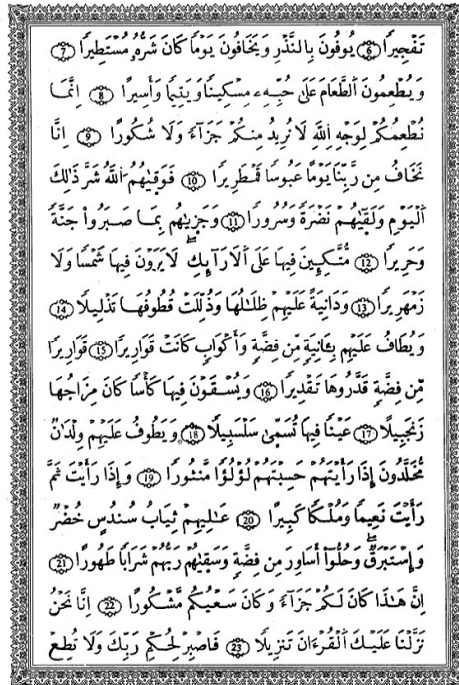 تَفْجِيرًا ⑥ يُوفُونَ بِالنَّذْرِ وَيَخَافُونَ يَوْمًا كَانَ شَرُّهُ مُسْتَطِيرًا ⑦
وَيُطْعِمُونَ الطَّعَامَ عَلَىٰ حُبِّهِ مِسْكِينًا وَيَتِيمًا وَأَسِيرًا ⑧ إِنَّمَا
نُطْعِمُكُمْ لِوَجْهِ اللَّهِ لَا نُرِيدُ مِنكُمْ جَزَاءً وَلَا شُكُورًا ⑨ إِنَّا
نَخَافُ مِن رَّبِّنَا يَوْمًا عَبُوسًا قَمْطَرِيرًا ⑩ فَوَقَىٰهُمُ اللَّهُ شَرَّ ذَٰلِكَ
الْيَوْمِ وَلَقَّىٰهُمْ نَضْرَةً وَسُرُورًا ⑪ وَجَزَىٰهُم بِمَا صَبَرُوا جَنَّةً
وَحَرِيرًا ⑫ مُّتَّكِـِٔينَ فِيهَا عَلَى الْأَرَآئِكِ لَا يَرَوْنَ فِيهَا شَمْسًا وَلَا
زَمْهَرِيرًا ⑬ وَدَانِيَةً عَلَيْهِمْ ظِلَٰلُهَا وَذُلِّلَتْ قُطُوفُهَا تَذْلِيلًا ⑭
وَيُطَافُ عَلَيْهِم بِـَٔانِيَةٍ مِّن فِضَّةٍ وَأَكْوَابٍ كَانَتْ قَوَارِيرًا ⑮ قَوَارِيرًا
مِّن فِضَّةٍ قَدَّرُوهَا تَقْدِيرًا ⑯ وَيُسْقَوْنَ فِيهَا كَأْسًا كَانَ مِزَاجُهَا
زَنجَبِيلًا ⑰ عَيْنًا فِيهَا تُسَمَّىٰ سَلْسَبِيلًا ⑱ وَيَطُوفُ عَلَيْهِمْ وِلْدَٰنٌ
مُّخَلَّدُونَ إِذَا رَأَيْتَهُمْ حَسِبْتَهُمْ لُؤْلُؤًا مَّنثُورًا ⑲ وَإِذَا رَأَيْتَ ثَمَّ
رَأَيْتَ نَعِيمًا وَمُلْكًا كَبِيرًا ⑳ عَٰلِيهِمْ ثِيَابُ سُندُسٍ خُضْرٌ
وَإِسْتَبْرَقٌ وَحُلُّوا أَسَاوِرَ مِن فِضَّةٍ وَسَقَىٰهُمْ رَبُّهُمْ شَرَابًا طَهُورًا ㉑
إِنَّ هَٰذَا كَانَ لَكُمْ جَزَاءً وَكَانَ سَعْيُكُم مَّشْكُورًا ㉒ إِنَّا نَحْنُ
نَزَّلْنَا عَلَيْكَ الْقُرْءَانَ تَنزِيلًا ㉓ فَاصْبِرْ لِحُكْمِ رَبِّكَ وَلَا تُطِعْ